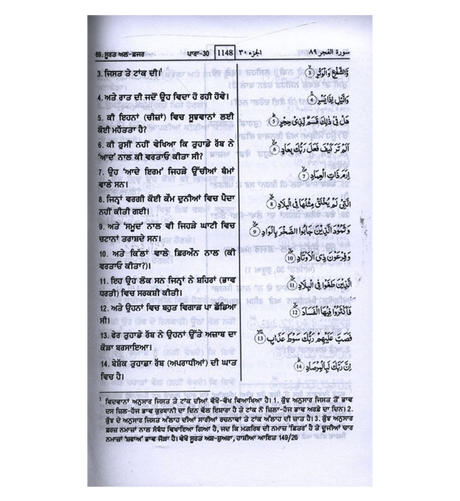 89. ਸੂਰਤ ਅਲ-ਫ਼ਜਰ
ਪਾਰਾ-30
1148
الجزء ٣٠
سورة الفجر ٨٩
3. ਜਿਸਤ ਤੇ ਟਾਂਕ ਦੀ।¹
وَّالشَّفْعِ وَالْوَتْرِ 3
4. ਅਤੇ ਰਾਤ ਦੀ ਜਦੋਂ ਉਹ ਵਿਦਾ ਹੋ ਰਹੀ ਹੋਵੇ।
وَالَّيْلِ اِذَا يَسْرِ 4
5. ਕੀ ਇਹਨਾਂ (ਚੀਜ਼ਾਂ) ਵਿਚ ਸੂਝਵਾਨਾਂ ਲਈ
ਕੋਈ ਮਹੱਤਤਾ ਹੈ?
هَلْ فِيْ ذٰلِكَ قَسَمٌ لِّذِيْ حِجْرٍ 5
6. ਕੀ ਤੁਸੀਂ ਨਹੀਂ ਵੇਖਿਆ ਕਿ ਤੁਹਾਡੇ ਰੱਬ ਨੇ
'ਆਦ' ਨਾਲ ਕੀ ਵਰਤਾਓ ਕੀਤਾ ਸੀ?
اَلَمْ تَرَ كَيْفَ فَعَلَ رَبُّكَ بِعَادٍ 6
7. ਉਹ 'ਆਦੇ ਇਰਮ' ਜਿਹੜੇ ਉੱਚੀਆਂ ਥੰਮਾਂ
ਵਾਲੇ ਸਨ।
اِرَمَ ذَاتِ الْعِمَادِ 7
8. ਜਿਨ੍ਹਾਂ ਵਰਗੀ ਕੋਈ ਕੌਮ ਦੁਨੀਆਂ ਵਿਚ ਪੈਦਾ
ਨਹੀਂ ਕੀਤੀ ਗਈ।
الَّتِيْ لَمْ يُخْلَقْ مِثْلُهَا فِي الْبِلَادِ 8
9. ਅਤੇ 'ਸਮੂਦ' ਨਾਲ ਵੀ ਜਿਹੜੇ ਘਾਟੀ ਵਿਚ
ਚਟਾਨਾਂ ਤਰਾਸ਼ਦੇ ਸਨ।
وَثَمُوْدَ الَّذِيْنَ جَابُوا الصَّخْرَ بِالْوَادِ 9
10. ਅਤੇ ਕਿੱਲਾਂ ਵਾਲੇ ਫ਼ਿਰਔਨ ਨਾਲ (ਕੀ
ਵਰਤਾਓ ਕੀਤਾ?)।
وَفِرْعَوْنَ ذِي الْاَوْتَادِ 10
11. ਇਹ ਉਹ ਲੋਕ ਸਨ ਜਿਨ੍ਹਾਂ ਨੇ ਸ਼ਹਿਰਾਂ (ਭਾਵ
ਧਰਤੀ) ਵਿਚ ਸਰਕਸ਼ੀ ਕੀਤੀ।
الَّذِيْنَ طَغَوْا فِي الْبِلَادِ 11
12. ਅਤੇ ਉਹਨਾਂ ਵਿਚ ਬਹੁਤ ਵਿਗਾੜ ਪਾ ਛੱਡਿਆ
ਸੀ।
فَاَكْثَرُوْا فِيْهَا الْفَسَادَ 12
13. ਫੇਰ ਤੁਹਾਡੇ ਰੱਬ ਨੇ ਉਹਨਾਂ ਉੱਤੇ ਅਜ਼ਾਬ ਦਾ
ਕੋੜਾ ਬਰਸਾਇਆ।
فَصَبَّ عَلَيْهِمْ رَبُّكَ سَوْطَ عَذَابٍ 13
14. ਬੇਸ਼ੱਕ ਤੁਹਾਡਾ ਰੱਬ (ਅਪਰਾਧੀਆਂ) ਦੀ ਘਾਤ
ਵਿਚ ਹੈ।
اِنَّ رَبَّكَ لَبِالْمِرْصَادِ 14
¹ ਵਿਦਵਾਨਾਂ ਅਨੁਸਾਰ ਜਿਸਤ ਤੇ ਟਾਂਕ ਦੀਆਂ ਵੱਖੋ-ਵੱਖ ਵਿਆਖਿਆ ਹੈ। 1. ਕੁੱਝ ਅਨੁਸਾਰ ਜਿਸਤ ਤੋਂ ਭਾਵ
ਦਸ ਜ਼ਿਲ-ਹੱਜ ਭਾਵ ਕੁਰਬਾਨੀ ਦਾ ਦਿਨ ਵੱਲ ਇਸ਼ਾਰਾ ਹੈ ਤੇ ਟਾਂਕ ਨੌਂ ਜ਼ਿਲ-ਹੱਜ ਭਾਵ ਅਰਫ਼ੇ ਦਾ ਦਿਨ। 2.
ਕੁੱਝ ਦੇ ਅਨੁਸਾਰ ਜਿਸਤ ਅੱਲਾਹ ਦੀਆਂ ਸਾਰੀਆਂ ਰਚਨਾਵਾਂ ਤੇ ਟਾਂਕ ਅੱਲਾਹ ਦੀ ਜ਼ਾਤ ਹੈ। 3. ਕੁੱਝ ਅਨੁਸਾਰ
ਫ਼ਰਜ਼ ਨਮਾਜ਼ਾਂ ਨਾਲ ਸੰਬੰਧ ਵਿਖਾਇਆ ਗਿਆ ਹੈ, ਜਦ ਕਿ ਮਗ਼ਰਿਬ ਦੀ ਨਮਾਜ਼ 'ਵਿਤਰ' ਹੈ ਤੇ ਦੂਜੀਆਂ ਚਾਰ
ਨਮਾਜ਼ਾਂ 'ਸ਼ਫ਼ਆ' ਭਾਵ ਜੋੜਾ ਹੈ। ਵੇਖੋ ਸੂਰਤ ਅਸ਼-ਸ਼ੁਅਰਾ, ਹਾਸ਼ੀਆ ਆਇਤ 149/26